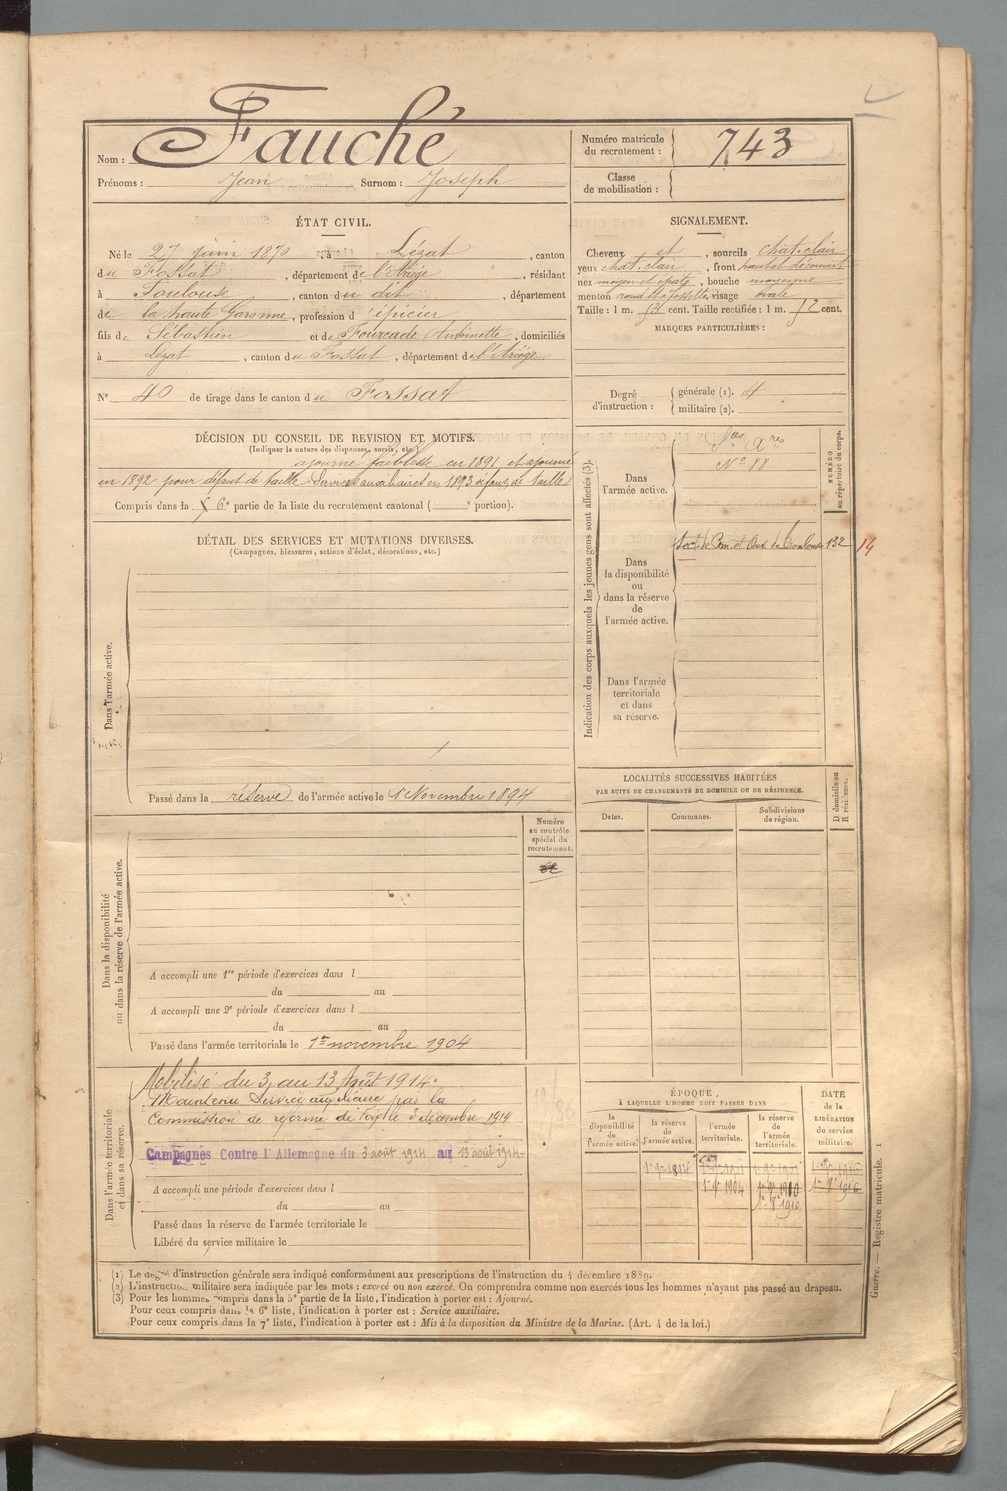 Nom : Fauché
Prénoms : Jean Surnom : Joseph
Numéro matricule du recrutement : 743
Classe de mobilisation :
ÉTAT CIVIL.
Né le 27 juin 1870, à Lézat, canton
du Fossat, département de l'Ariège, résidant
à Toulouse, canton du dit, département
de la haute Garonne, profession d'épicier
fils de Sébastien et de Fourcade Antoinette, domiciliés
à Lézat, canton du Fossat, département de l'Ariège
N° 40 de tirage dans le canton du Fossat
SIGNALEMENT.
Cheveux et, sourcils chat. clair
yeux chat. clair, front haut et découvert
nez moyen et épaté, bouche moyenne
menton rond et fossette, visage ovale
Taille : 1 m. cent. Taille rectifiée : 1 m. 52 cent.
MARQUES PARTICULIÈRES :
Degré d'instruction : générale (1). 4
militaire (2).
DÉCISION DU CONSEIL DE REVISION ET MOTIFS.
(Indiquer la nature des dispenses, sursis, etc.)
ajourné faiblesse en 1891 et ajourné
en 1892 pour défaut de taille Services auxiliaires en 1893 défaut de taille
Compris dans la 6e partie de la liste du recrutement cantonal ( e portion).
DÉTAIL DES SERVICES ET MUTATIONS DIVERSES.
(Campagnes, blessures, actions d'éclat, décorations, etc.)
Dans l'armée active.
Passé dans la réserve de l'armée active le 1er Novembre 1894
Indication des corps auxquels les jeunes gens sont affectés (3).
NUMÉRO au répertoire du corps.
Dans l'armée active.
Sces Ares
N° 88
Dans la disponibilité ou dans la réserve de l'armée active.
Sect. de Com. et Ouv. de Toulouse 132 14
Dans l'armée territoriale et dans sa réserve.
LOCALITÉS SUCCESSIVES HABITÉES
PAR SUITE DE CHANGEMENTS DE DOMICILE OU DE RÉSIDENCE.
D domicile ou R résidence.
Dates. Communes. Subdivisions de région.
Numéro au contrôle spécial du recrutement.
Dans la disponibilité ou dans la réserve de l'armée active.
A accompli une 1re période d'exercices dans l
du au
A accompli une 2e période d'exercices dans l
du au
Passé dans l'armée territoriale le 1er novembre 1904
Dans l'armée territoriale et dans sa réserve.
Mobilisé du 3 au 13 Août 1914.
Maintenu Service auxiliaire par la
Commission de réforme de Foix le 3 décembre 1914
Campagnes Contre l'Allemagne du 3 août 1914 au 13 août 1914
A accompli une période d'exercices dans l
du au
Passé dans la réserve de l'armée territoriale le
Libéré du service militaire le
ÉPOQUE,
À LAQUELLE L'HOMME DOIT PASSER DANS
la disponibilité de l'armée active.
la réserve de l'armée active.
l'armée territoriale.
la réserve de l'armée territoriale.
DATE de la LIBÉRATION du service militaire.
1er 9e 1894
1er 9e 1904
(1) Le degré d'instruction générale sera indiqué conformément aux prescriptions de l'instruction du 4 décembre 1889.
(2) L'instruction militaire sera indiquée par les mots : exercé ou non exercé. On comprendra comme non exercés tous les hommes n'ayant pas passé au drapeau.
(3) Pour les hommes compris dans la 5e partie de la liste, l'indication à porter est : Ajourné.
Pour ceux compris dans la 6e liste, l'indication à porter est : Service auxiliaire.
Pour ceux compris dans la 7e liste, l'indication à porter est : Mis à la disposition du Ministre de la Marine. (Art. 4 de la loi.)
Guerre. — Registre matricule. 1